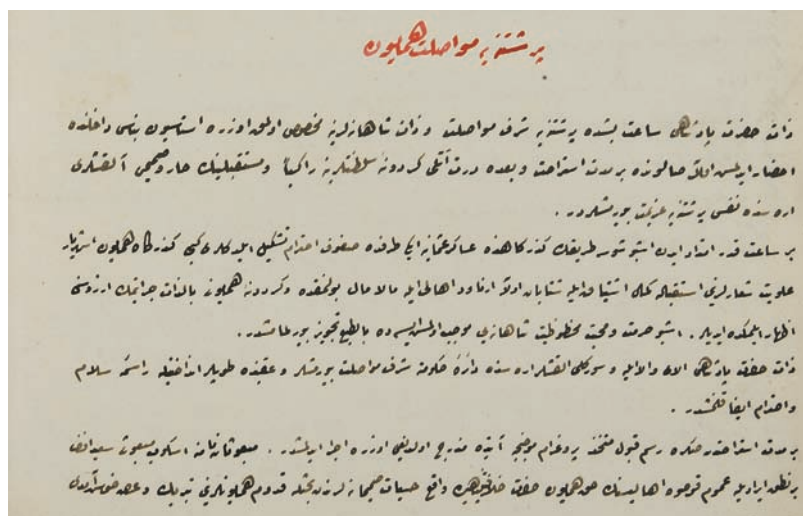 پرشتنه یه مواصلت همایون
ذات حضرت پادشاهی ساعت بشده پرشتنه یه شرف مواصلت و ذات شاهانه لرینه مخصوص اولمق اوزره استاسیون بناسی داخلنده
احضار ایدلمش اولان صالونده بر مدت استراحت و بعده درت آتلی گردونهٔ سلطنتلرینه راکباً و مستقبلینك حار و صمیمی آلقشلری
اره سنده نفس پرشتنه یه عزیمت بیورمشلردر .
بر ساعت قدر امتداد ایدن اشبو شوسه طریقنك گذرگاهنده عساکر عثمانیه ایکی طرفده صفوف احترام تشکیل ایلدکلری کبی گذرگاه همایون شهریار
علویت شعارلرینی استقباله کمال اشتیاق ایله شتابان اولان ارناود اهالی ایله مالامال بولنمقده و گردونه همایونی بالذات جر ایتمك آرزوسنی
اظهار ایلمکده ایدیلر . اشبو حرمت و محبت محظوظیت شاهانه یی موجب اولمش ایسه ده بالطبع تجویز بیورلمامشدر .
ذات حضرت پادشاهی آلای والا ایله و سورکلی آلقشلر اره سنده دائرهٔ حکومته شرف مواصلت بیورمشلر و عقبنده طوپلر انداختیله راسمهٔ سلام
و احترام ایفا قلنمشدر .
بر مدت استراحتدن صکره رسم قبول متخذ پروغرام موجبنجه آتیده مندرج اولدیغی اوزره اجرا ایدلمشدر . مبعوثان نامنه اسکوب مبعوثی سعید افندی
بر نطق ایراد ایله عموم قوصوه اهالیسنك حق همایون حضرت خلافتپناهیده واقع حسیات صمیمانه لرندن بحثله قدوم همایونلرینی تبریك و عرض خوش آمدی